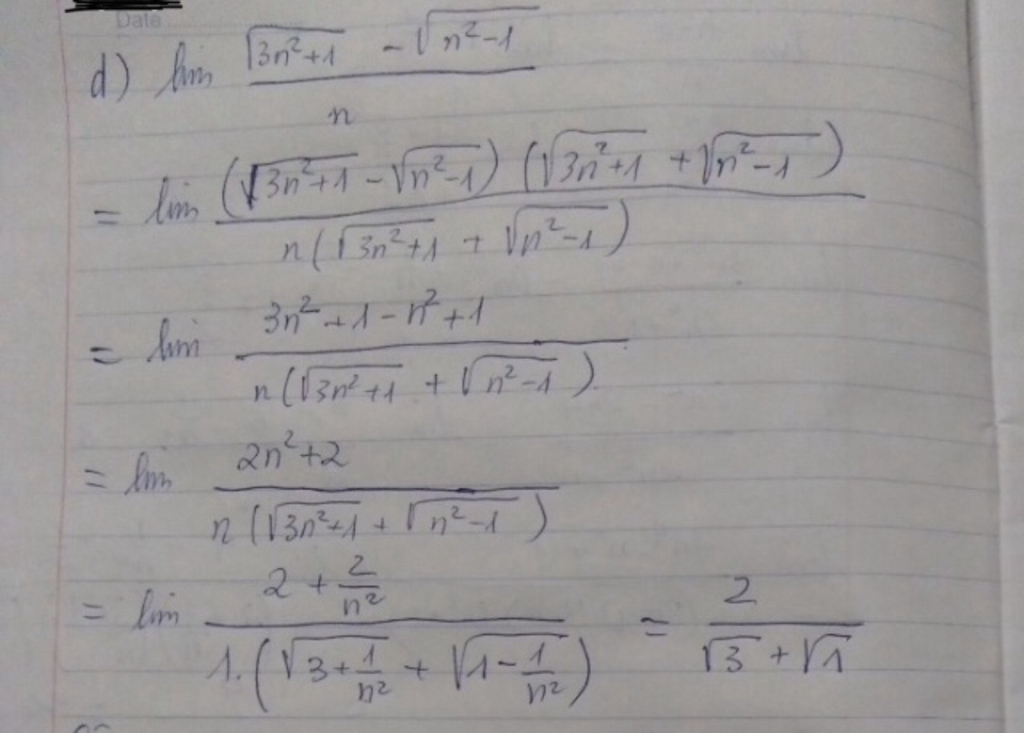 Date
d) lim (√(3n²+1) - √(n²-1)) / n
= lim ((√(3n²+1) - √(n²-1)) (√(3n²+1) + √(n²-1))) / (n(√(3n²+1) + √(n²-1)))
= lim (3n²+1-n²+1) / (n(√(3n²+1) + √(n²-1)))
= lim (2n²+2) / (n(√(3n²+1) + √(n²-1)))
= lim (2 + 2/n²) / (1.(√(3+1/n²) + √(1-1/n²))) = 2 / (√3 + √1)